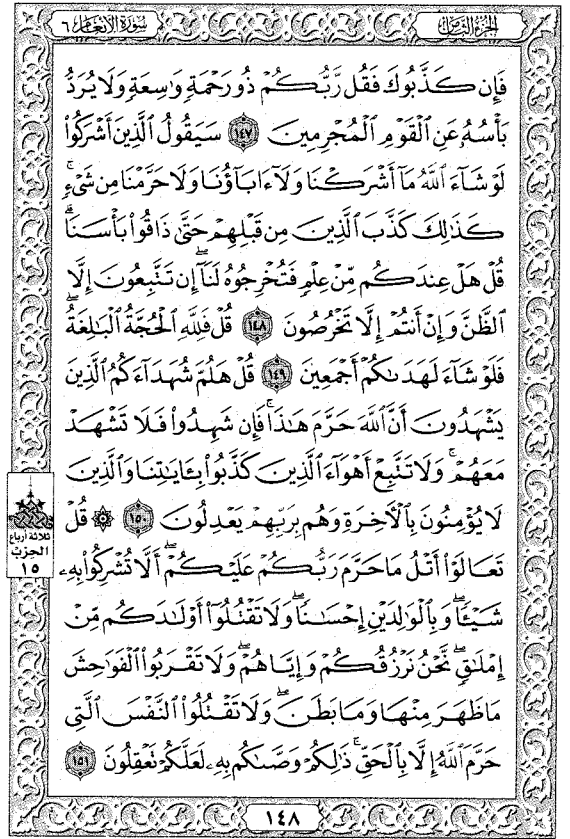 سُورَةُ الأَنعَامِ ٦
الجُزْءُ الثَّامِنُ
فَإِن كَذَّبُوكَ فَقُل رَّبُّكُمْ ذُو رَحْمَةٍ وَاسِعَةٍ وَلَا يُرَدُّ
بَأْسُهُۥ عَنِ ٱلْقَوْمِ ٱلْمُجْرِمِينَ ١٤٧ سَيَقُولُ ٱلَّذِينَ أَشْرَكُوا۟
لَوْ شَآءَ ٱللَّهُ مَآ أَشْرَكْنَا وَلَآ ءَابَآؤُنَا وَلَا حَرَّمْنَا مِن شَىْءٍۚ
كَذَٰلِكَ كَذَّبَ ٱلَّذِينَ مِن قَبْلِهِمْ حَتَّىٰ ذَاقُوا۟ بَأْسَنَاۗ
قُلْ هَلْ عِندَكُم مِّنْ عِلْمٍ فَتُخْرِجُوهُ لَنَآۖ إِن تَتَّبِعُونَ إِلَّا
ٱلظَّنَّ وَإِنْ أَنتُمْ إِلَّا تَخْرُصُونَ ١٤٨ قُلْ فَلِلَّهِ ٱلْحُجَّةُ ٱلْبَٰلِغَةُۖ
فَلَوْ شَآءَ لَهَدَىٰكُمْ أَجْمَعِينَ ١٤٩ قُلْ هَلُمَّ شُهَدَآءَكُمُ ٱلَّذِينَ
يَشْهَدُونَ أَنَّ ٱللَّهَ حَرَّمَ هَٰذَاۖ فَإِن شَهِدُوا۟ فَلَا تَشْهَدْ
مَعَهُمْۚ وَلَا تَتَّبِعْ أَهْوَآءَ ٱلَّذِينَ كَذَّبُوا۟ بِـَٔايَٰتِنَا وَٱلَّذِينَ
لَا يُؤْمِنُونَ بِٱلْـَٔاخِرَةِ وَهُم بِرَبِّهِمْ يَعْدِلُونَ ١٥٠ ۞ قُلْ
تَعَالَوْا۟ أَتْلُ مَا حَرَّمَ رَبُّكُمْ عَلَيْكُمْۖ أَلَّا تُشْرِكُوا۟ بِهِۦ
شَيْـًٔاۖ وَبِٱلْوَٰلِدَيْنِ إِحْسَٰنًاۖ وَلَا تَقْتُلُوٓا۟ أَوْلَٰدَكُم مِّنْ
إِمْلَٰقٍۖ نَّحْنُ نَرْزُقُكُمْ وَإِيَّاهُمْۖ وَلَا تَقْرَبُوا۟ ٱلْفَوَٰحِشَ
مَا ظَهَرَ مِنْهَا وَمَا بَطَنَۖ وَلَا تَقْتُلُوا۟ ٱلنَّفْسَ ٱلَّتِى
حَرَّمَ ٱللَّهُ إِلَّا بِٱلْحَقِّۚ ذَٰلِكُمْ وَصَّىٰكُم بِهِۦ لَعَلَّكُمْ تَعْقِلُونَ ١٥١
ثلاثة أرباع
الحزب
١٥
١٤٨